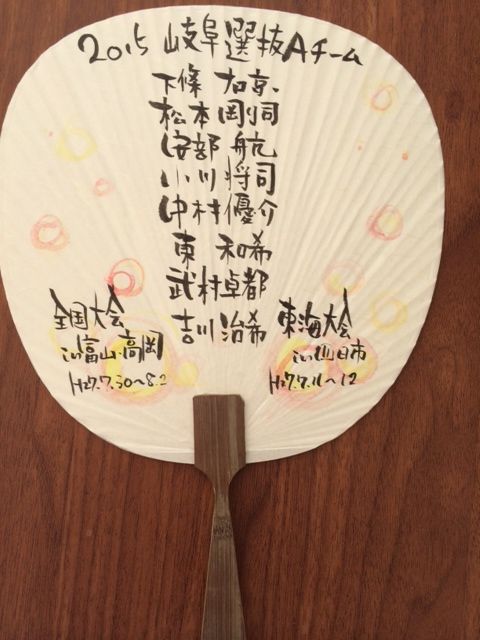 2015 岐阜選抜Aチーム
下條 加京
松本 剛司
安部 航
小川 将司
中村 優介
東 和希
武村卓都
吉川 治希
全国大会
in富山・高岡
H27.7.30〜8.2
東海大会
in四日市
H27.7.11〜12